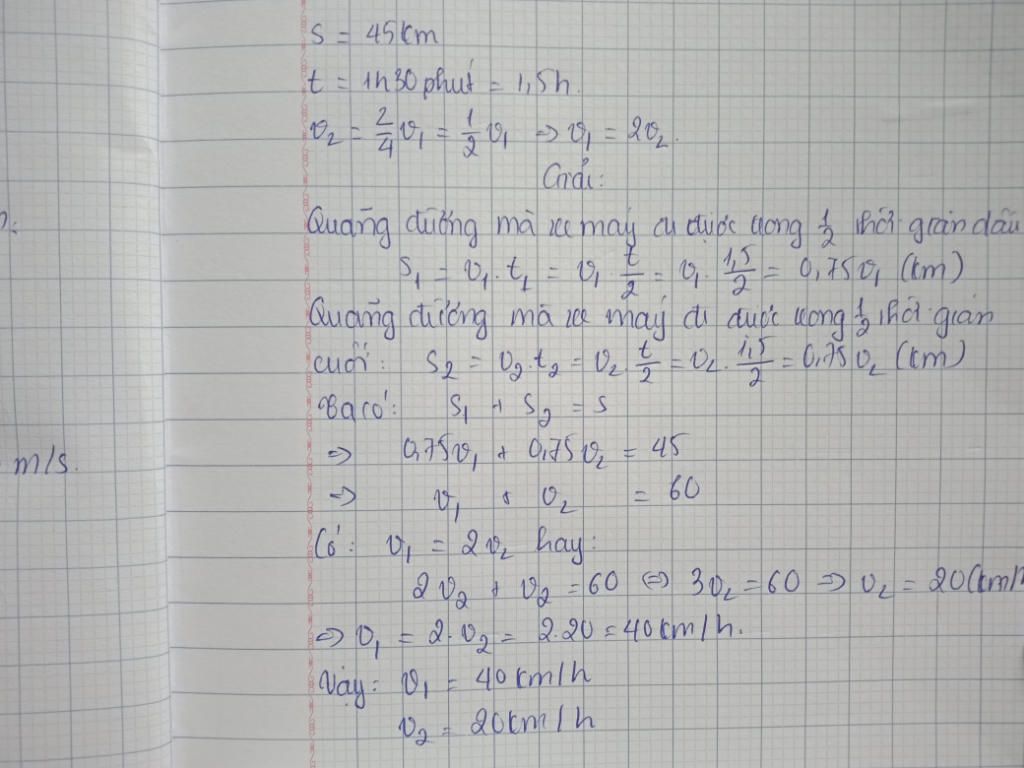 s = 45km
t = 1h30phút = 1,5h.
v₂ = 2/4 v₁ = 1/2 v₁ ⇒ v₁ = 2v₂.
Giải:
Quãng đường mà xe máy đi được trong 1/2 thời gian đầu
s₁ = v₁.t₁ = v₁.t/2 = v₁.1,5/2 = 0,75v₁ (km)
Quãng đường mà xe máy đi được trong 1/2 thời gian
cuối: s₂ = v₂.t₂ = v₂.t/2 = v₂.1,5/2 = 0,75v₂ (km)
Ta có: s₁ + s₂ = s
m/s.
⇒ 0,75v₁ + 0,75v₂ = 45
⇒ v₁ + v₂ = 60
Có: v₁ = 2v₂ hay:
2v₂ + v₂ = 60 ⇔ 3v₂ = 60 ⇒ v₂ = 20(km/h
⇒ v₁ = 2.v₂ = 2.20 = 40km/h.
Vậy: v₁ = 40km/h
v₂ = 20km/h